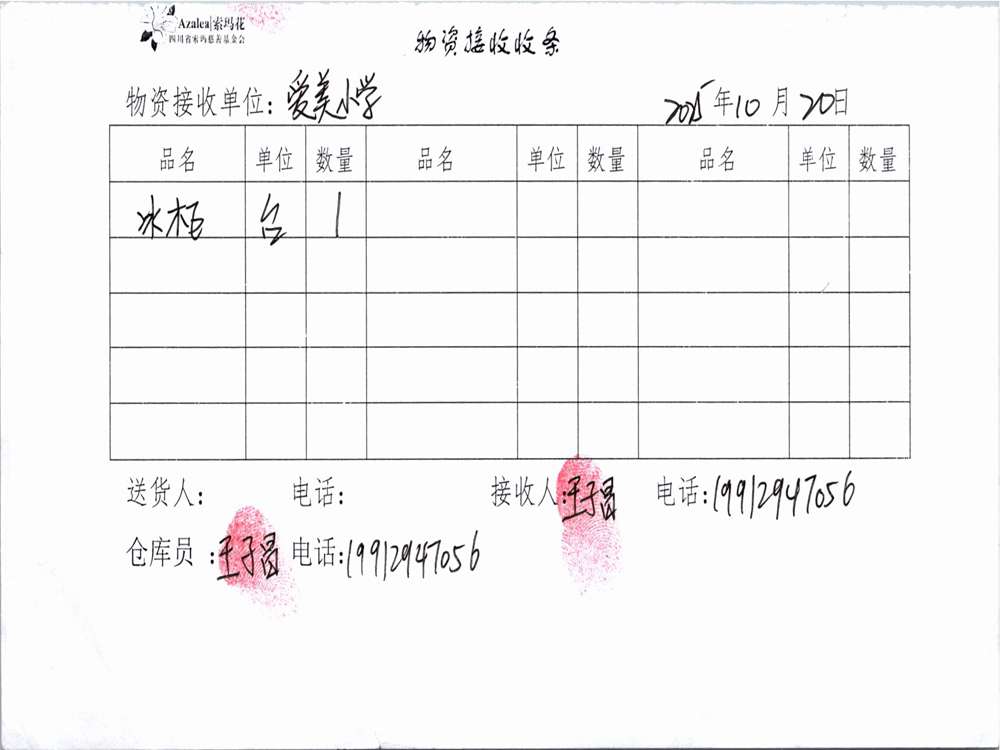 Azalea|索玛花
四川省索玛慈善基金会
物资接收收条
物资接收单位：爱美小学 2025年10月20日
品名 单位 数量 品名 单位 数量 品名 单位 数量
冰柜 台 1
送货人： 电话： 接收人：王子昌 电话：19912947056
仓库员：王子昌 电话：19912947056